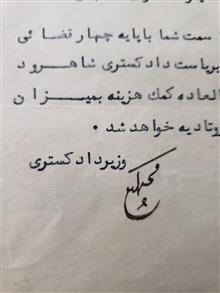 سمت شما با پایه چهار قضائی
بریاست دادگستری شاهرود
العاده کمک هزینه بمیزان
وتادیه خواهد شد.
وزیر دادگستری